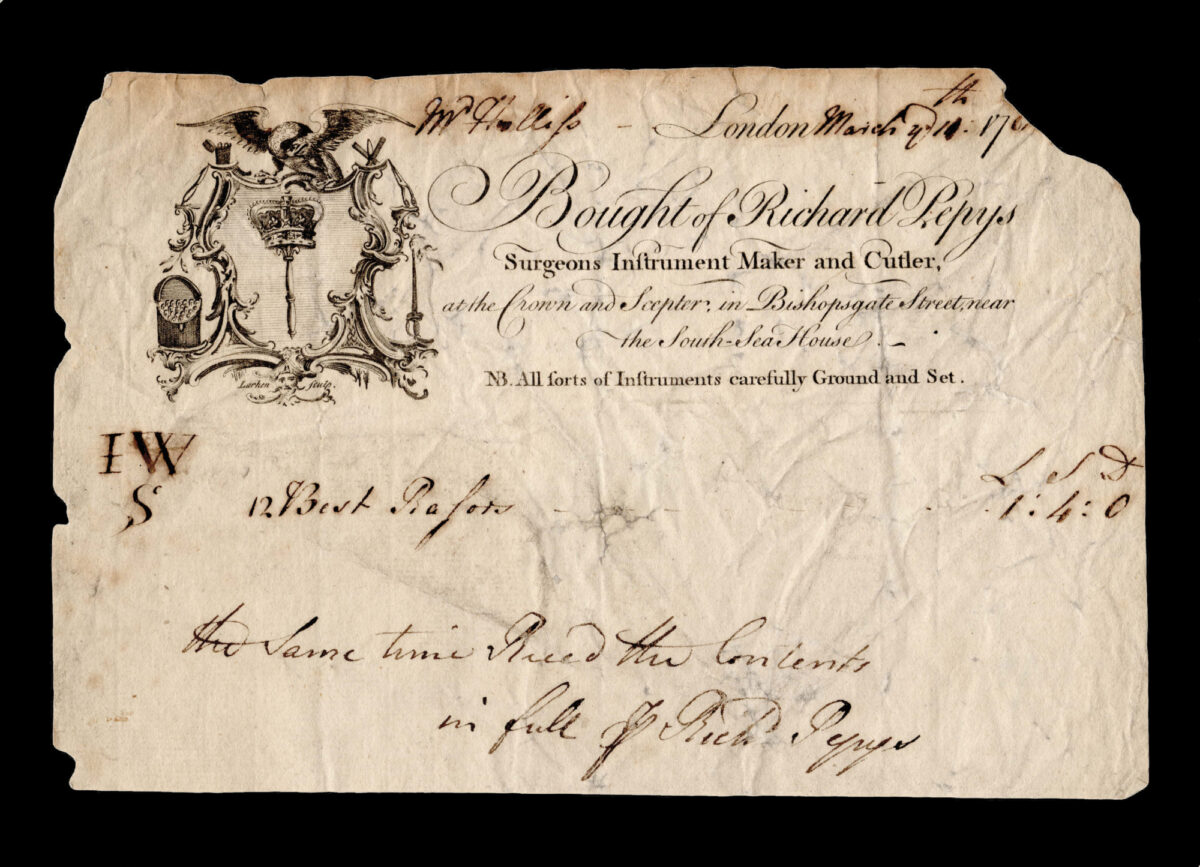 Mr Holliss - London March ye 11th: 176
Bought of Richard Pepys
Surgeons Inſtrument Maker and Cutler,
at the Crown and Scepter, in Bishopsgate Street, near
the South-Sea House.
NB. All ſorts of Inſtruments carefully Ground and Set.
Larken ſculp.
IW
S
L S D
12 Best Raſors - - 1:4:0
the Same time Reced the Contents
in full Richd Pepys